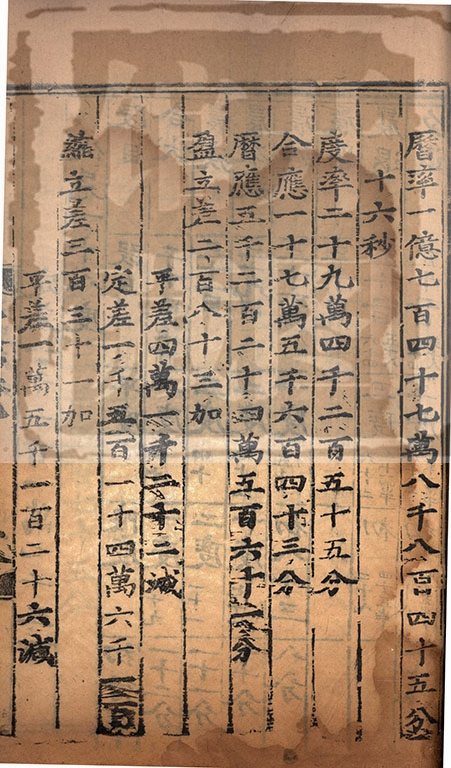 曆率一億七百四十七萬八千八百四十五分
十六秒
度率二十九萬四千二百五十五分
合應一十七萬五千六百四十三分
曆應五千二百二十四萬五百六十一分
盈立差二百八十三加
平差四萬一千二十二減
定差一千五百一十四萬六千一百
縮立差三百三十一加
平差一萬五千一百二十六減